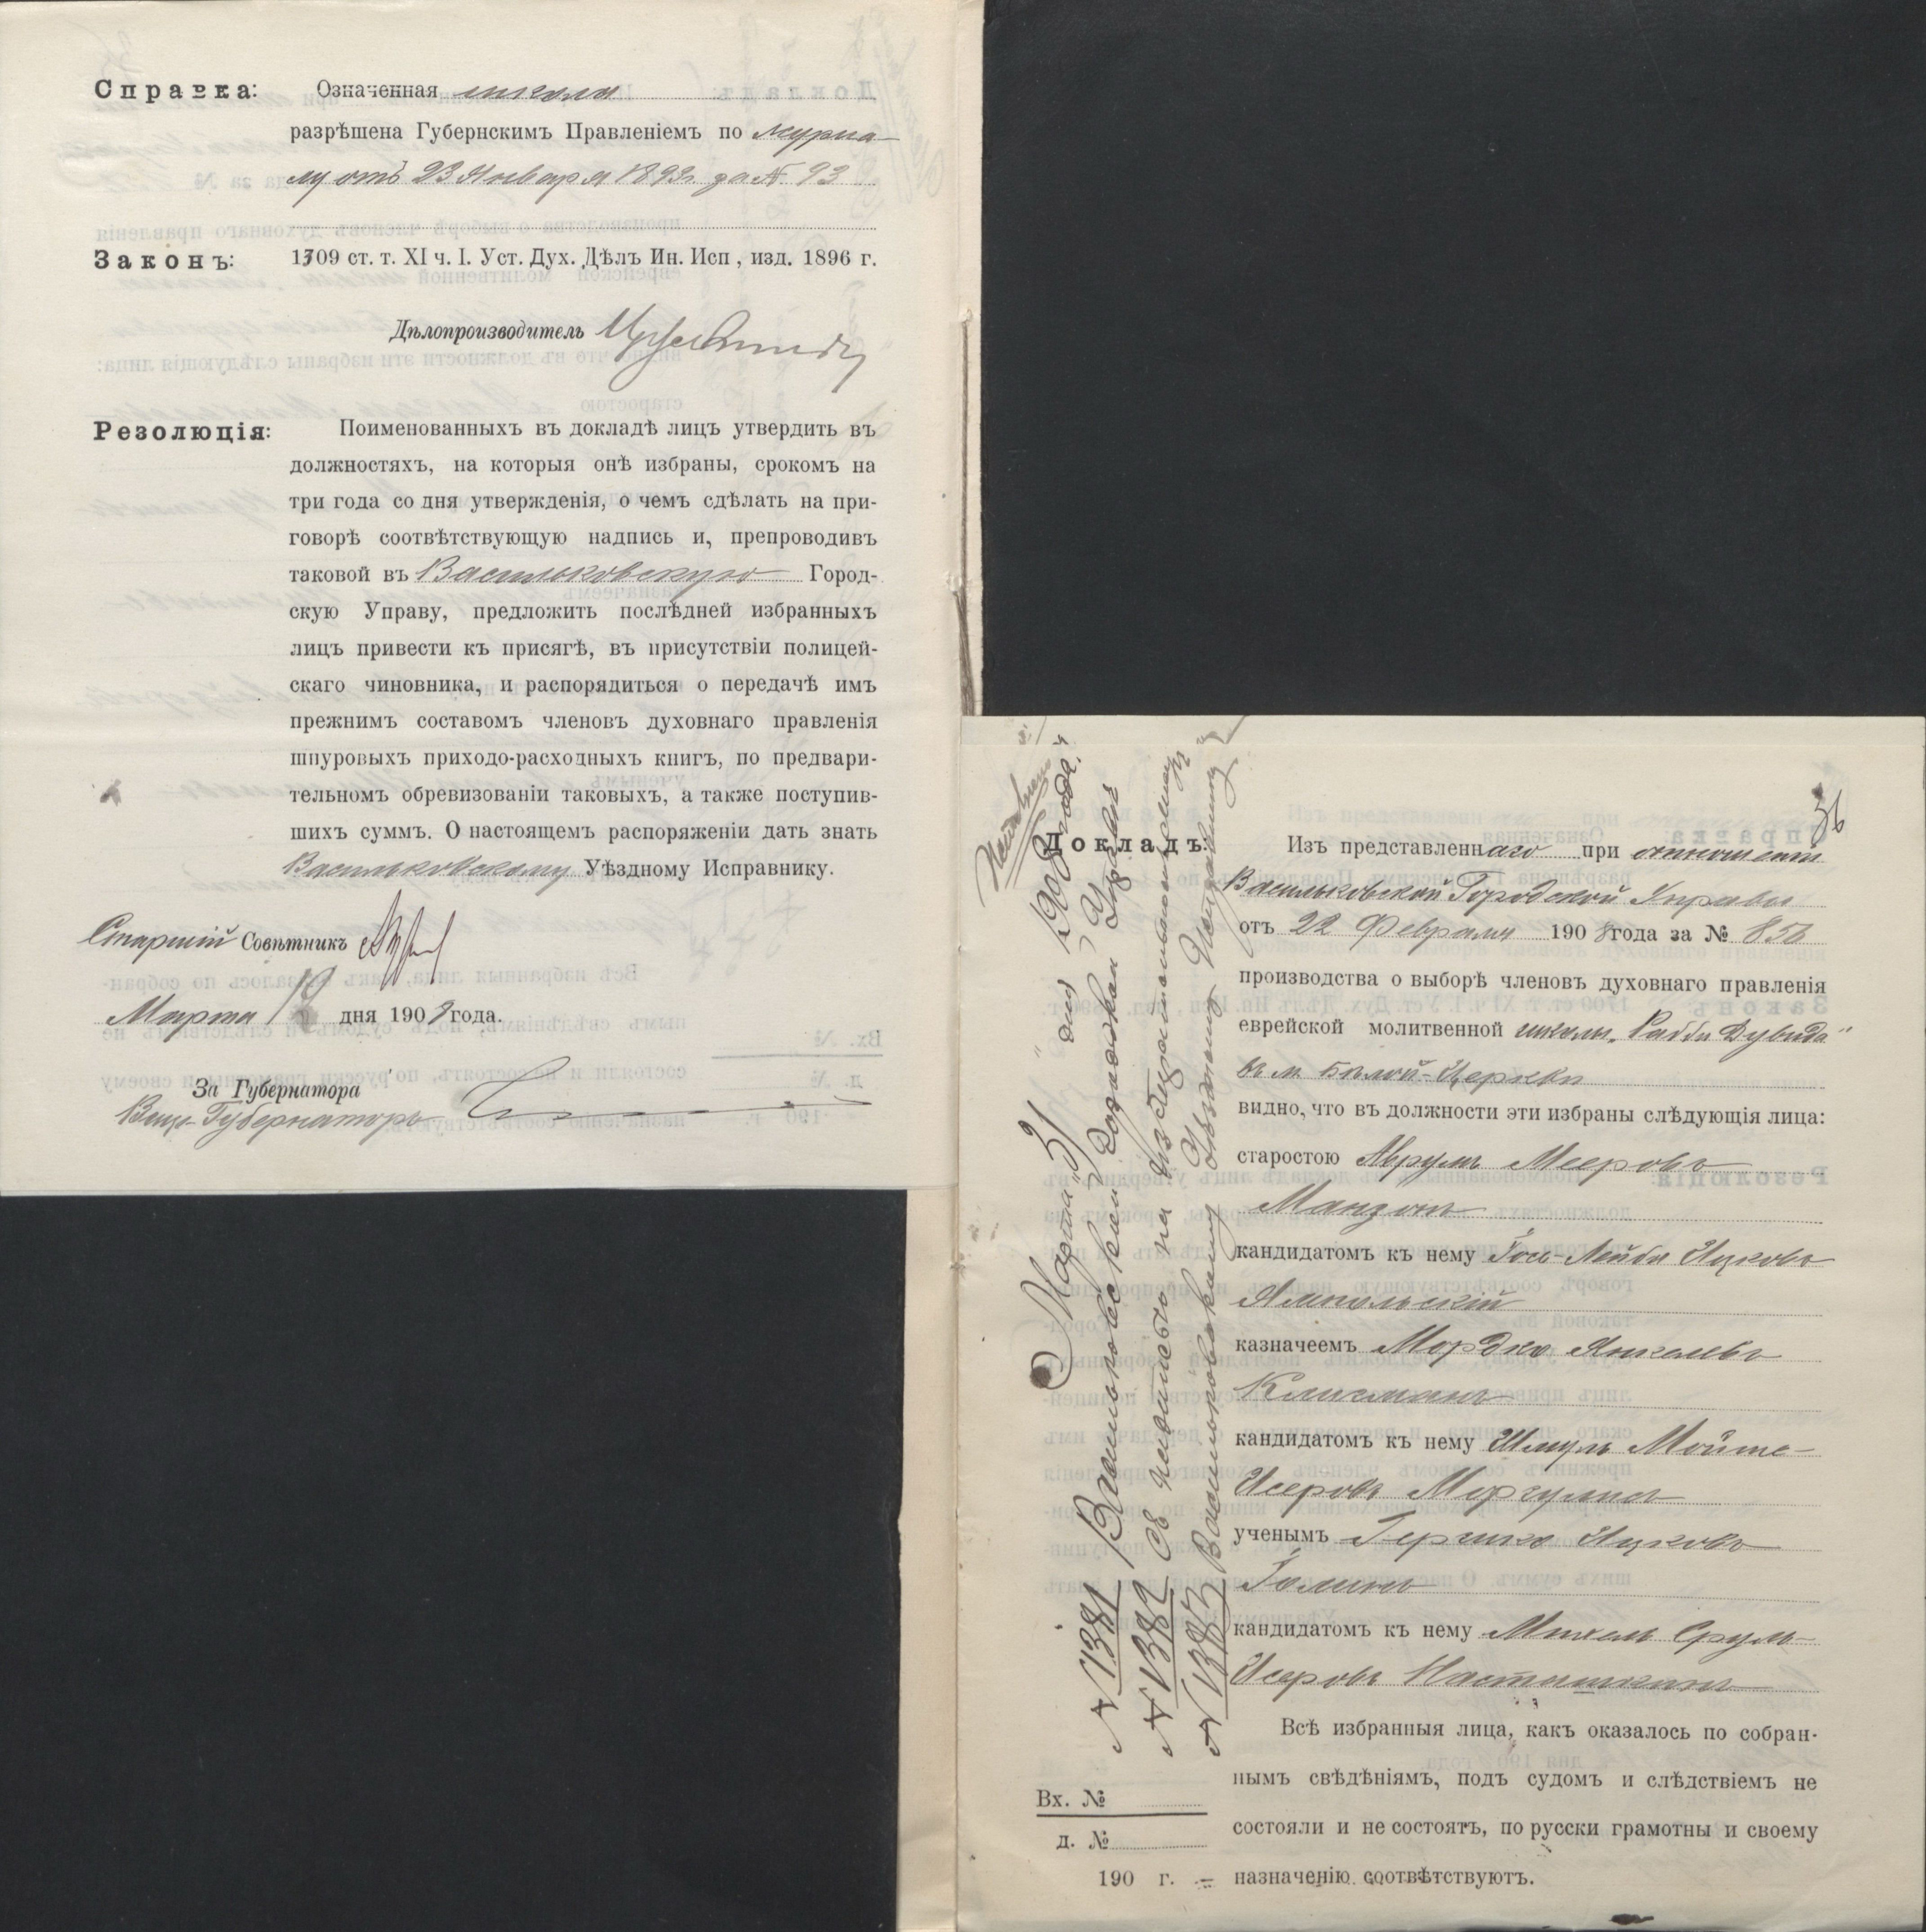 Справка: Означенная школа
разрѣшена Губернскимъ Правленіемъ по журна-
лу отъ 23 Января 1893г. за № 93
Законъ: 1309 ст. т. XI ч. I. Уст. Дух. Дѣлъ Ин. Исп , изд. 1896 г.
Дѣлопроизводитель
Резолюція: Поименованныхъ въ докладѣ лицъ утвердить въ
должностяхъ, на которыя онѣ избраны, срокомъ на
три года со дня утвержденія, о чемъ сдѣлать на при-
говорѣ соотвѣтствующую надпись и, препроводивъ
таковой въ Васильковскую Город-
скую Управу, предложить послѣдней избранныхъ
лицъ привести къ присягѣ, въ присутствіи полицей-
скаго чиновника, и распорядиться о передачѣ имъ
прежнимъ составомъ членовъ духовнаго правленія
шнуровыхъ приходо-расходныхъ книгъ, по предвари-
тельномъ обревизованіи таковыхъ, а также поступив-
шихъ суммъ. О настоящемъ распоряженіи дать знать
Васильковскому Уѣздному Исправнику.
Старшій Совѣтникъ
Марта дня 190 года.
За Губернатора
Вице-Губернаторъ
36
Докладъ: Изъ представленнаго при отношеніи
Васильковской Городской Управы
отъ 22 Февраля 1908 года за № 856
производства о выборѣ членовъ духовнаго правленія
еврейской молитвенной школы „Рабби Дувида"
въ м. Бѣлой-Церкви
видно, что въ должности эти избраны слѣдующія лица:
старостою Аврумъ Мееровъ
Манзонъ
кандидатомъ къ нему Іось-Лейба Ицковъ
Ямпольскій
казначеемъ Мордко Янкелевъ
Клигманъ
кандидатомъ къ нему Шмуль Мойше-
Исеровъ Моргулисъ
ученымъ Гершко Ицковъ
Голинъ
кандидатомъ къ нему Михель Сруль-
Исеровъ
Всѣ избранныя лица, какъ оказалось по собран-
нымъ свѣдѣніямъ, подъ судомъ и слѣдствіемъ не
состояли и не состоятъ, по русски грамотны и своему
назначенію соотвѣтствуютъ.
Марта „31" дня 1908 года.
№ 1381 Васильковской Городской Управѣ
№ 1382
№ 1383 Васильковскому Уѣздному Исправнику
Вх. №
д. №
190 г.